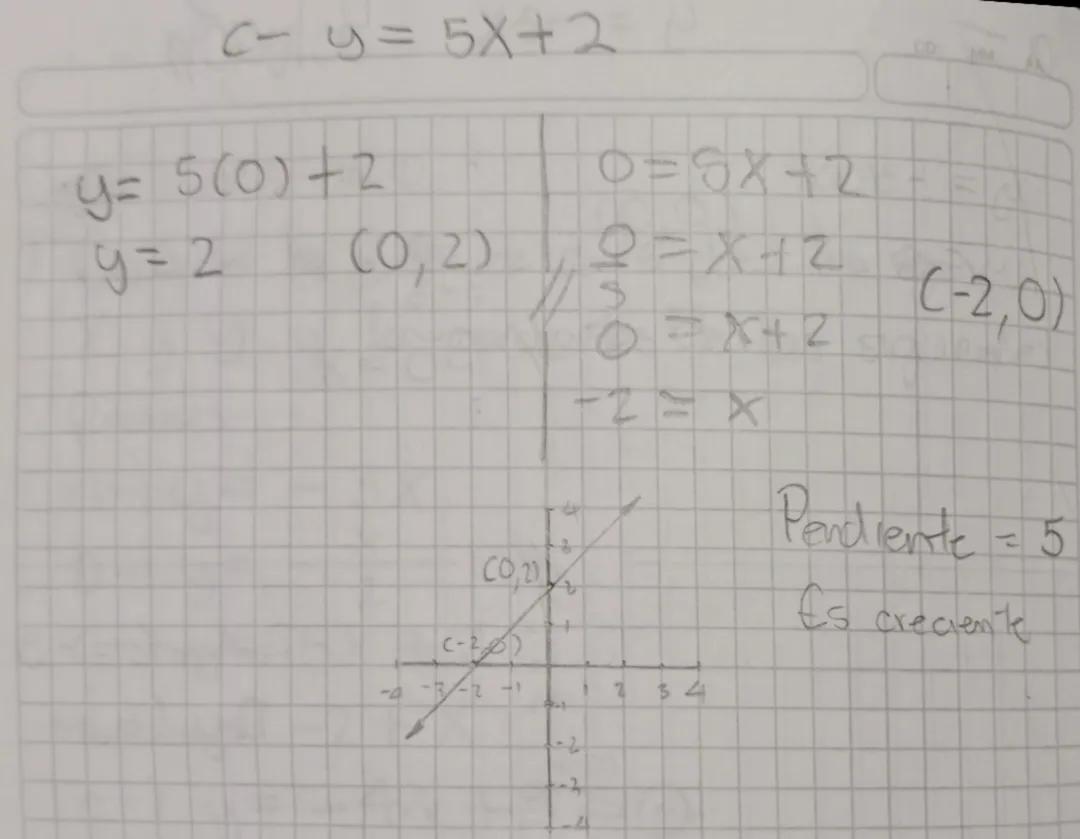 c- y = 5x+2
y= 5(0)+2
y= 2 (0,2)
0 = 5x+2
0/5 = x+2
0 = x+2
-2 = x
(-2,0)
Pendiente = 5
Es creciente
4
3
(0,2) 2
1
(-2,0)
-4 -3 -2 -1 1 2 3 4
-1
-2
-3
-4